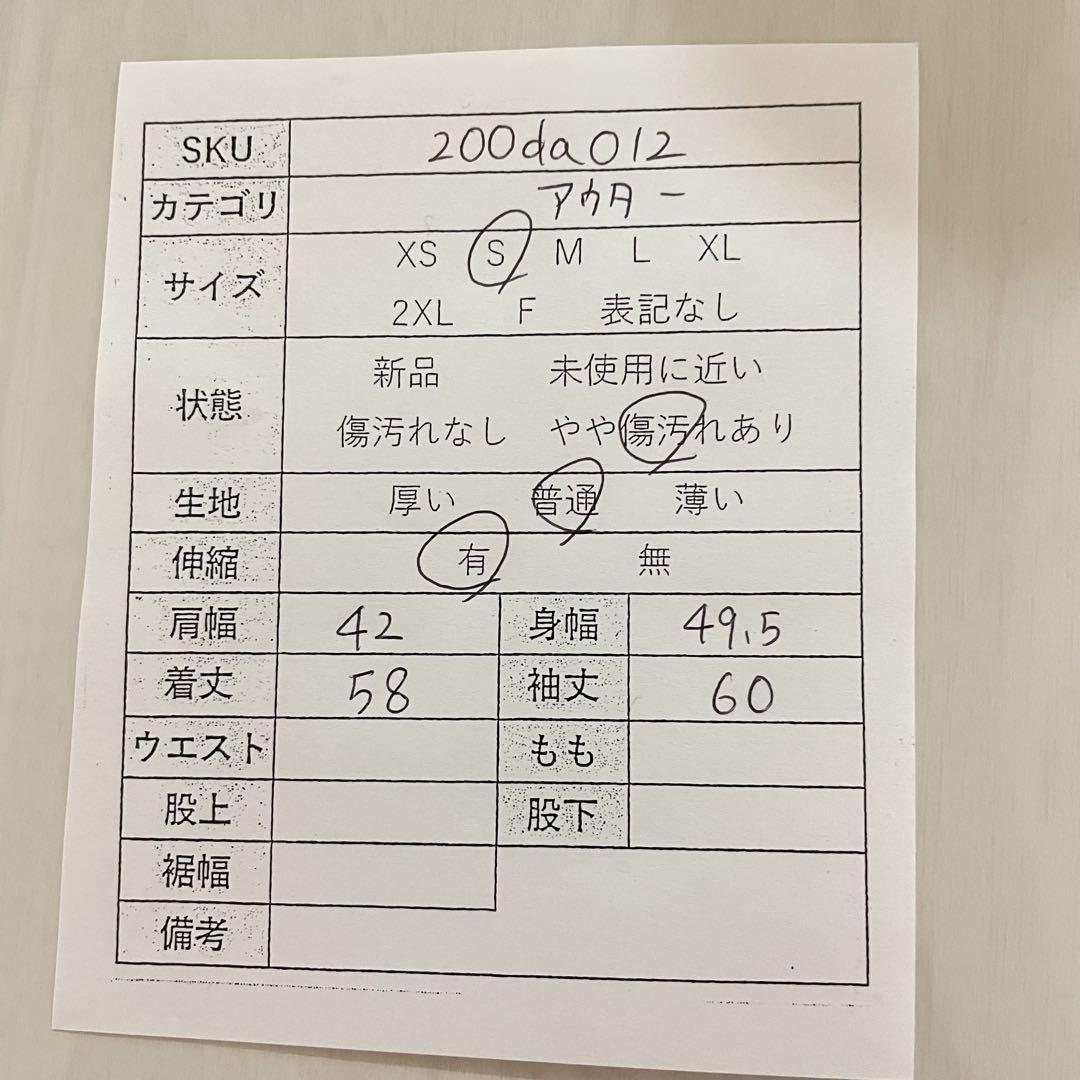 SKU 200da012
カテゴリ アウター
サイズ XS S M L XL
2XL F 表記なし
状態 新品 未使用に近い
傷汚れなし やや傷汚れあり
生地 厚い 普通 薄い
伸縮 有 無
肩幅 42 身幅 49.5
着丈 58 袖丈 60
ウエスト もも
股上 股下
裾幅
備考